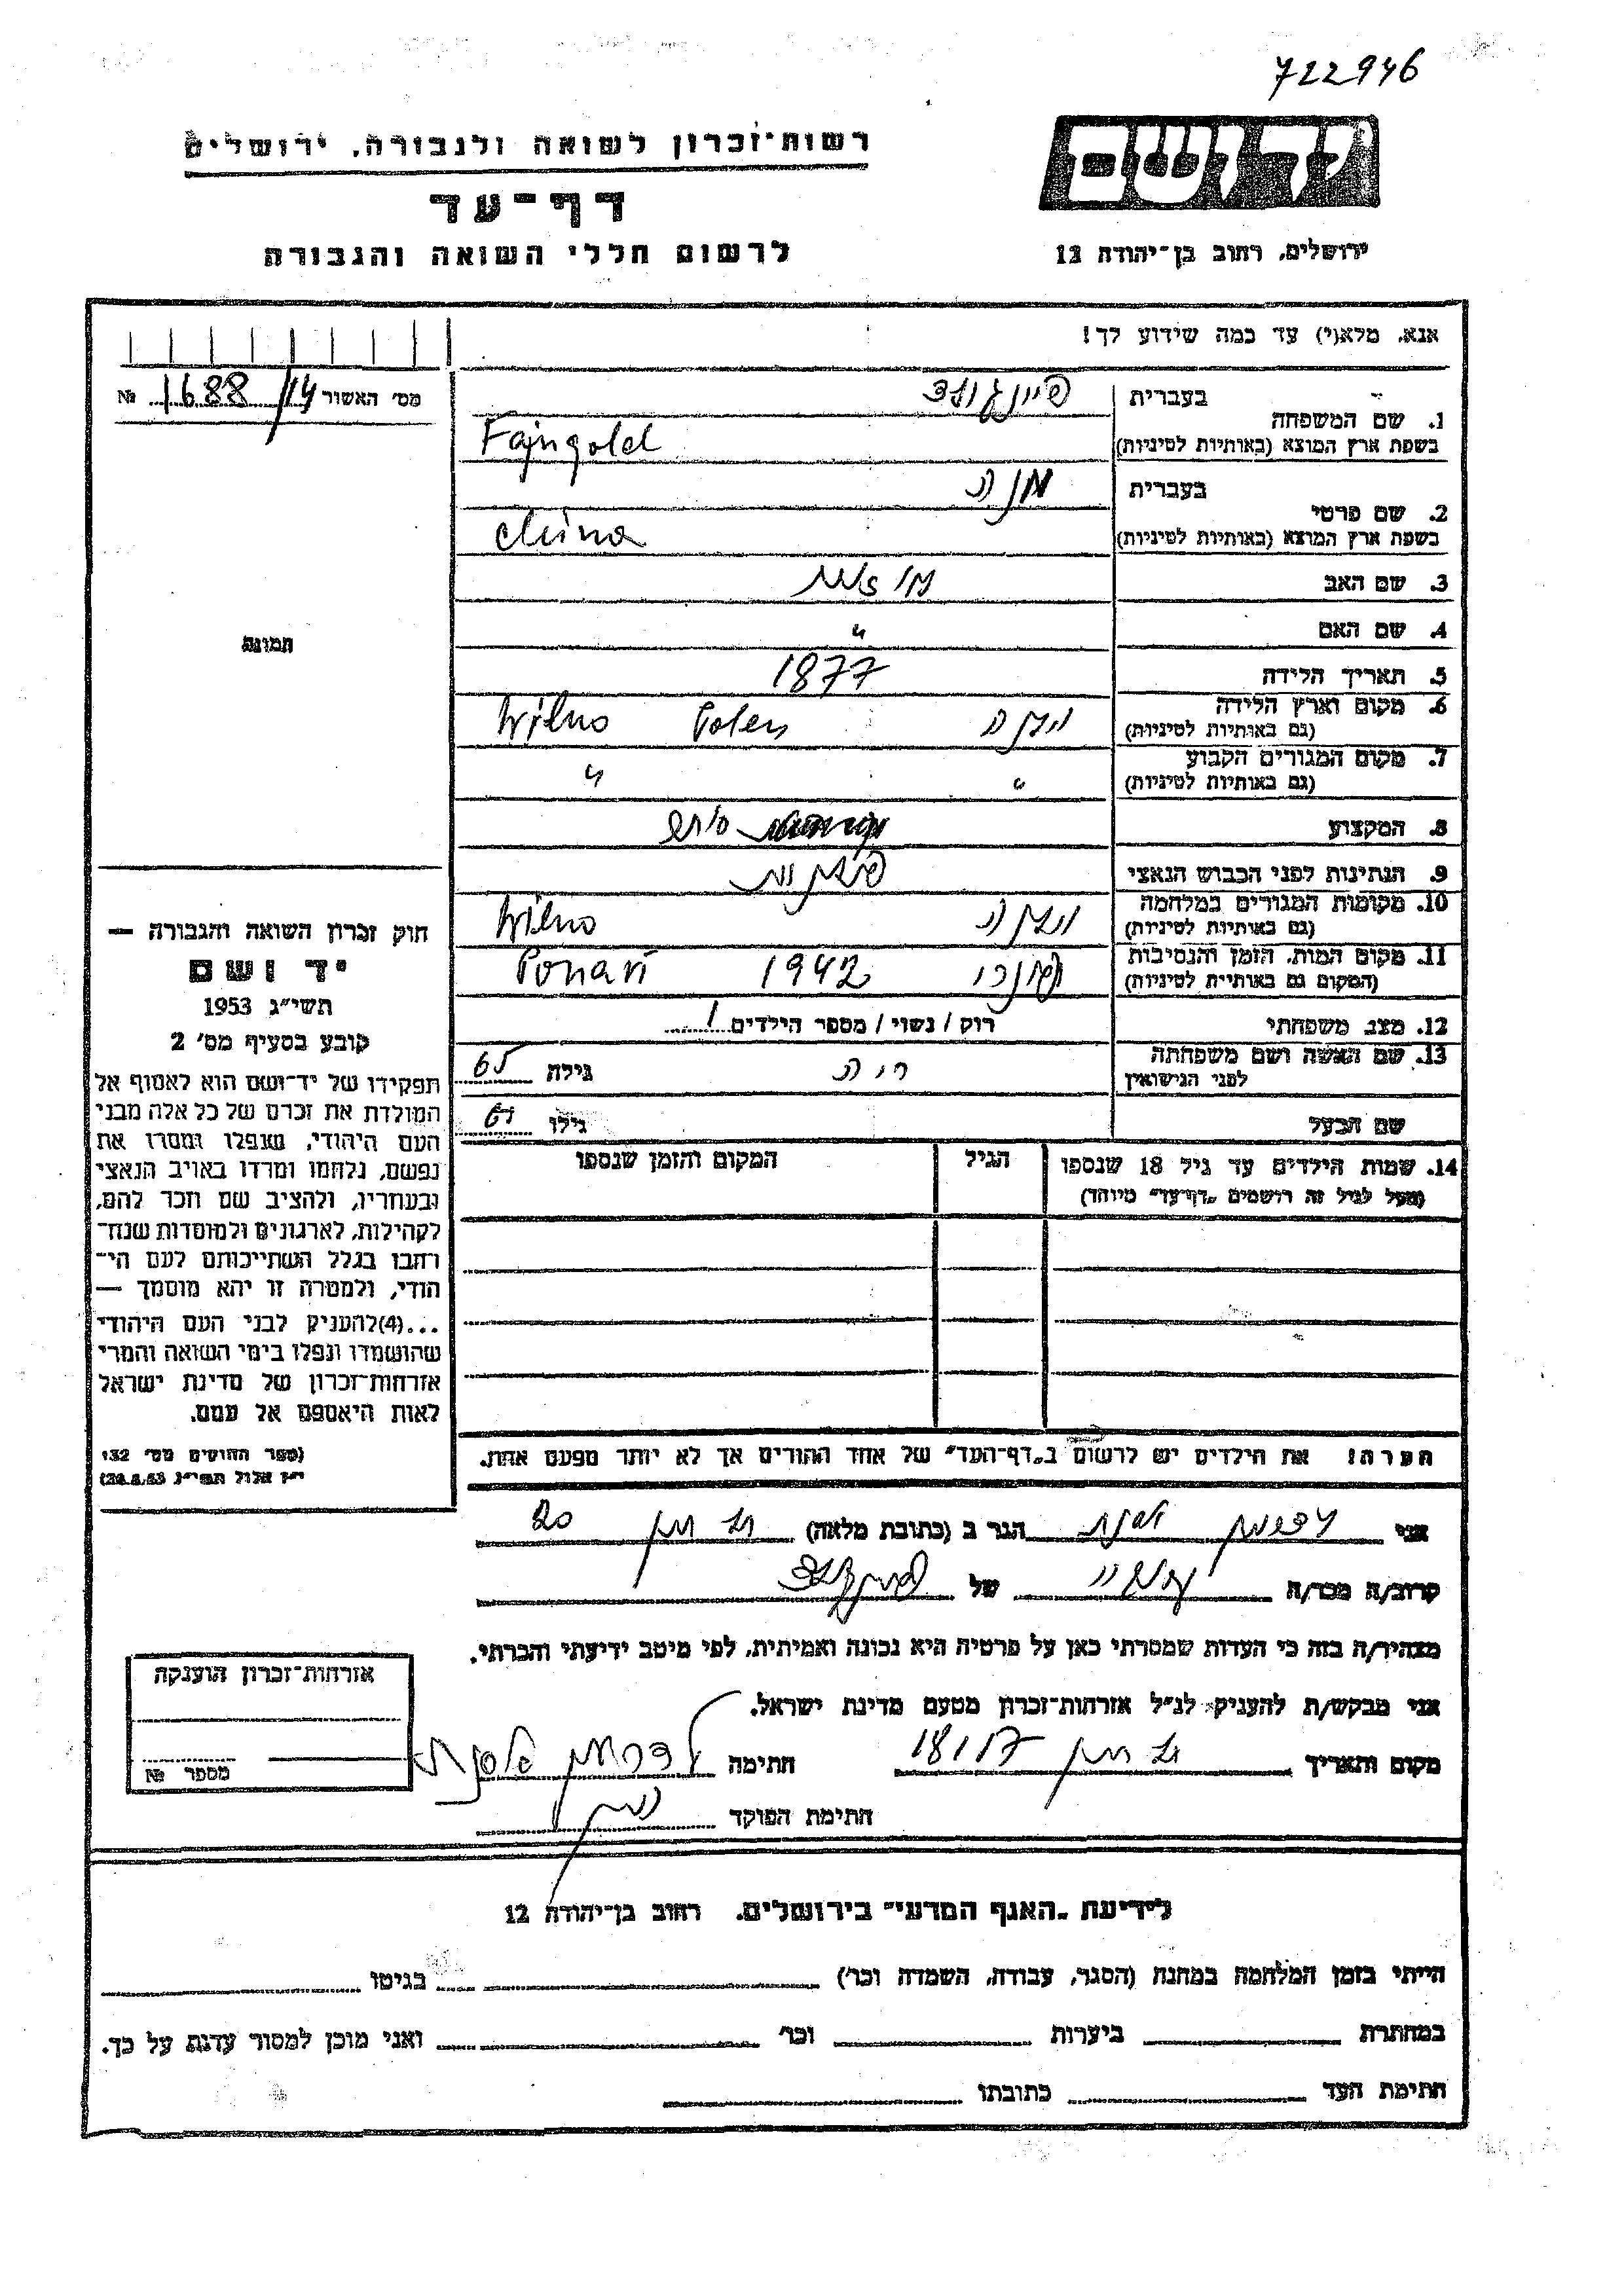 722946
רשות־זכרון לשואה ולגבורה, ירושלים
יד ושם
דף־עד
לרשום חללי השואה והגבורה
ירושלים, רחוב בן־יהודה 12
אנא, מלא(י) עד כמה שידוע לך!
מס' האשור 1688/14 №
1. שם המשפחה
בעברית פיינגולד
בשפת ארץ המוצא (באותיות לטיניות) Fajngold
2. שם פרטי
בעברית
בשפת ארץ המוצא (באותיות לטיניות)
3. שם האב
4. שם האם "
5. תאריך הלידה 1877
6. מקום וארץ הלידה
(גם באותיות לטיניות) וילנה Polen Wilno
7. מקום המגורים הקבוע
(גם באותיות לטיניות) " "
8. המקצוע סוחר
9. הנתינות לפני הכבוש הנאצי פולנית
10. מקומות המגורים במלחמה
(גם באותיות לטיניות) וילנה Wilno
11. מקום המות, הזמן והנסיבות
(המקום גם באותיות לטיניות) פונרי 1942 Ponari
12. מצב משפחתי רוק / נשוי / מספר הילדים 1
13. שם האשה ושם משפחתה
לפני הנישואין גילה 65
שם הבעל גילו
14. שמות הילדים עד גיל 18 שנספו
(מעל לגיל זה רושמים „דף־עד" מיוחד)
הגיל
המקום והזמן שנספו
הערה! את הילדים יש לרשום ב„דף־העד" של אחד ההורים אך לא יותר מפעם אחת.
תמונה
חוק זכרון השואה והגבורה —
יד ושם
תשי"ג 1953
קובע בסעיף מס' 2
תפקידו של יד־ושם הוא לאסוף אל
המולדת את זכרם של כל אלה מבני
העם היהודי, שנפלו ומסרו את
נפשם, נלחמו ומרדו באויב הנאצי
ובעוזריו, ולהציב שם וזכר להם,
לקהילות, לארגונים ולמוסדות שנח־
רבו בגלל השתייכותם לעם הי־
הודי, ולמטרה זו יהא מוסמך —
...(4)להעניק לבני העם היהודי
שהושמדו ונפלו בימי השואה והמרי
אזרחות־זכרון של מדינת ישראל
לאות היאספם אל עמם.
(ספר החוקים מס' 132
י"ז אלול תשי"ג 28.8.53)
אני הגר ב (כתובת מלאה)
קרוב/ה מכר/ה של
מצהיר/ה בזה כי העדות שמסרתי כאן על פרטיה היא נכונה ואמיתית, לפי מיטב ידיעתי והכרתי.
אני מבקש/ת להעניק לנ"ל אזרחות־זכרון מטעם מדינת ישראל.
מקום ותאריך חתימה
חתימת הפוקד
אזרחות־זכרון הוענקה
מספר №
לידיעת „האגף המדעי" בירושלים, רחוב בן־יהודה 12
הייתי בזמן המלחמה במחנה (הסגר, עבודה, השמדה וכו') בגיטו
במחתרת ביערות וכו' ואני מוכן למסור עדות על כך.
חתימת העד כתובתו